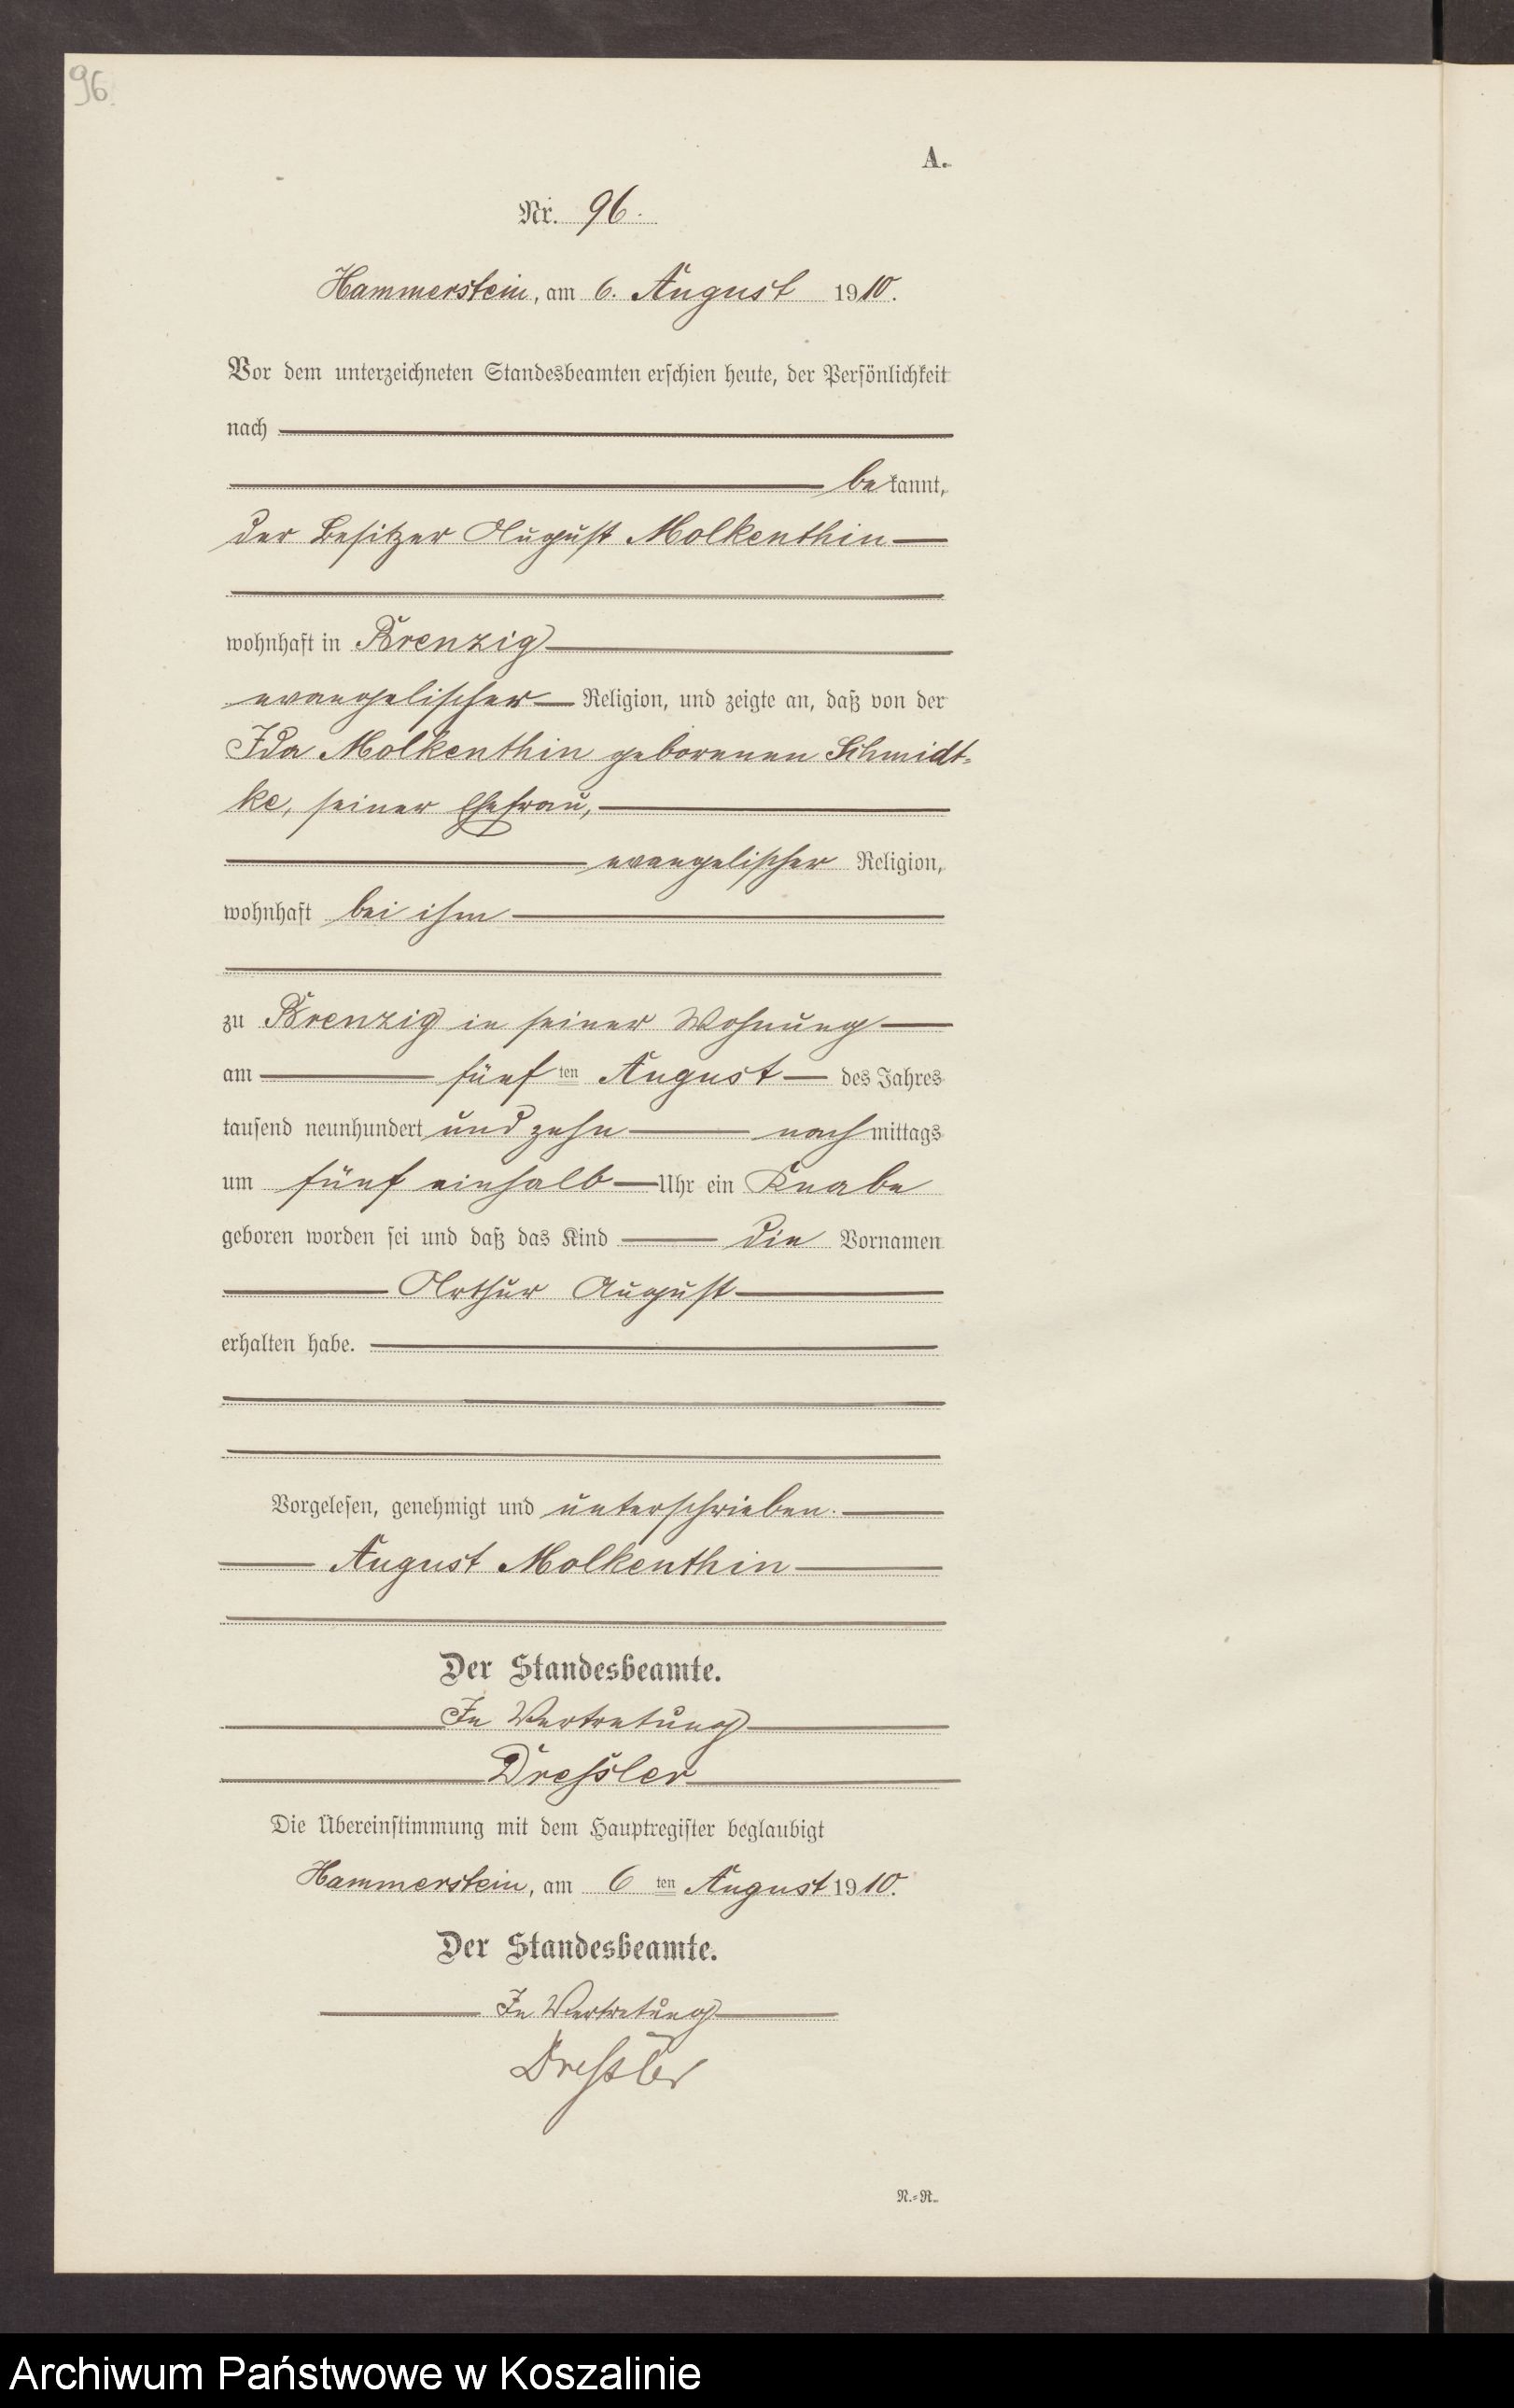 96.
A.
Nr. 96.
Hammerstein, am 6. August 1910.
Vor dem unterzeichneten Standesbeamten erschien heute, der Persönlichkeit
nach
bekannt,
der Besitzer August Molkenthin
wohnhaft in Brenzig
evangelischer Religion, und zeigte an, daß von der
Ida Molkenthin geborenen Schmidt-
ke, seiner Ehefrau,
evangelischer Religion,
wohnhaft bei ihm
zu Brenzig in seiner Wohnung
am fünften August des Jahres
tausend neunhundert und zehn nachmittags
um fünf einhalb Uhr ein Knabe
geboren worden sei und daß das Kind die Vornamen
Arthur August
erhalten habe.
Vorgelesen, genehmigt und unterschrieben.
August Molkenthin
Der Standesbeamte.
In Vertretung
Dressler
Die Übereinstimmung mit dem Hauptregister beglaubigt
Hammerstein, am 6ten August 1910.
Der Standesbeamte.
In Vertretung
Dressler
N.-R.
Archiwum Państwowe w Koszalinie